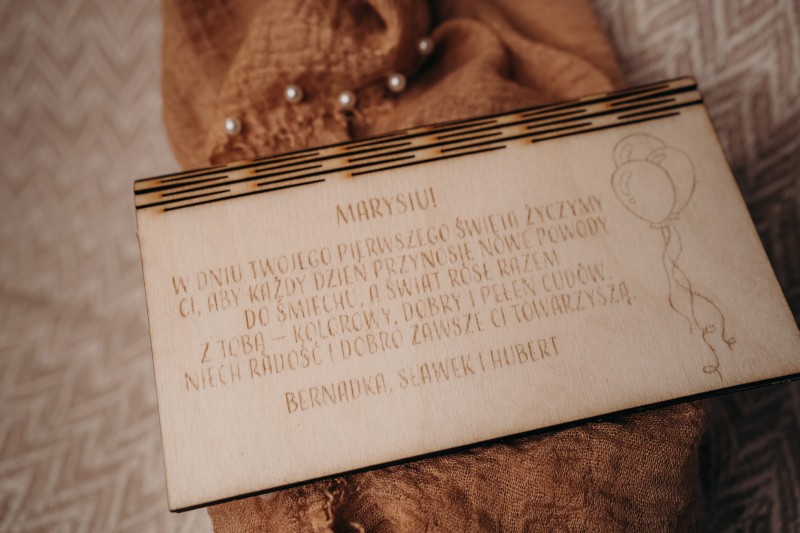 MARYSIU!
W DNIU TWOJEGO PIERWSZEGO ŚWIĘTA ŻYCZYMY
CI, ABY KAŻDY DZIEŃ PRZYNOSIŁ NOWE POWODY
DO ŚMIECHU, A ŚWIAT RÓSŁ RAZEM
Z TOBĄ – KOLOROWY, DOBRY I PEŁEN CUDÓW.
NIECH RADOŚĆ I DOBRO ZAWSZE CI TOWARZYSZĄ.
BERNADKA, SŁAWEK I HUBERT